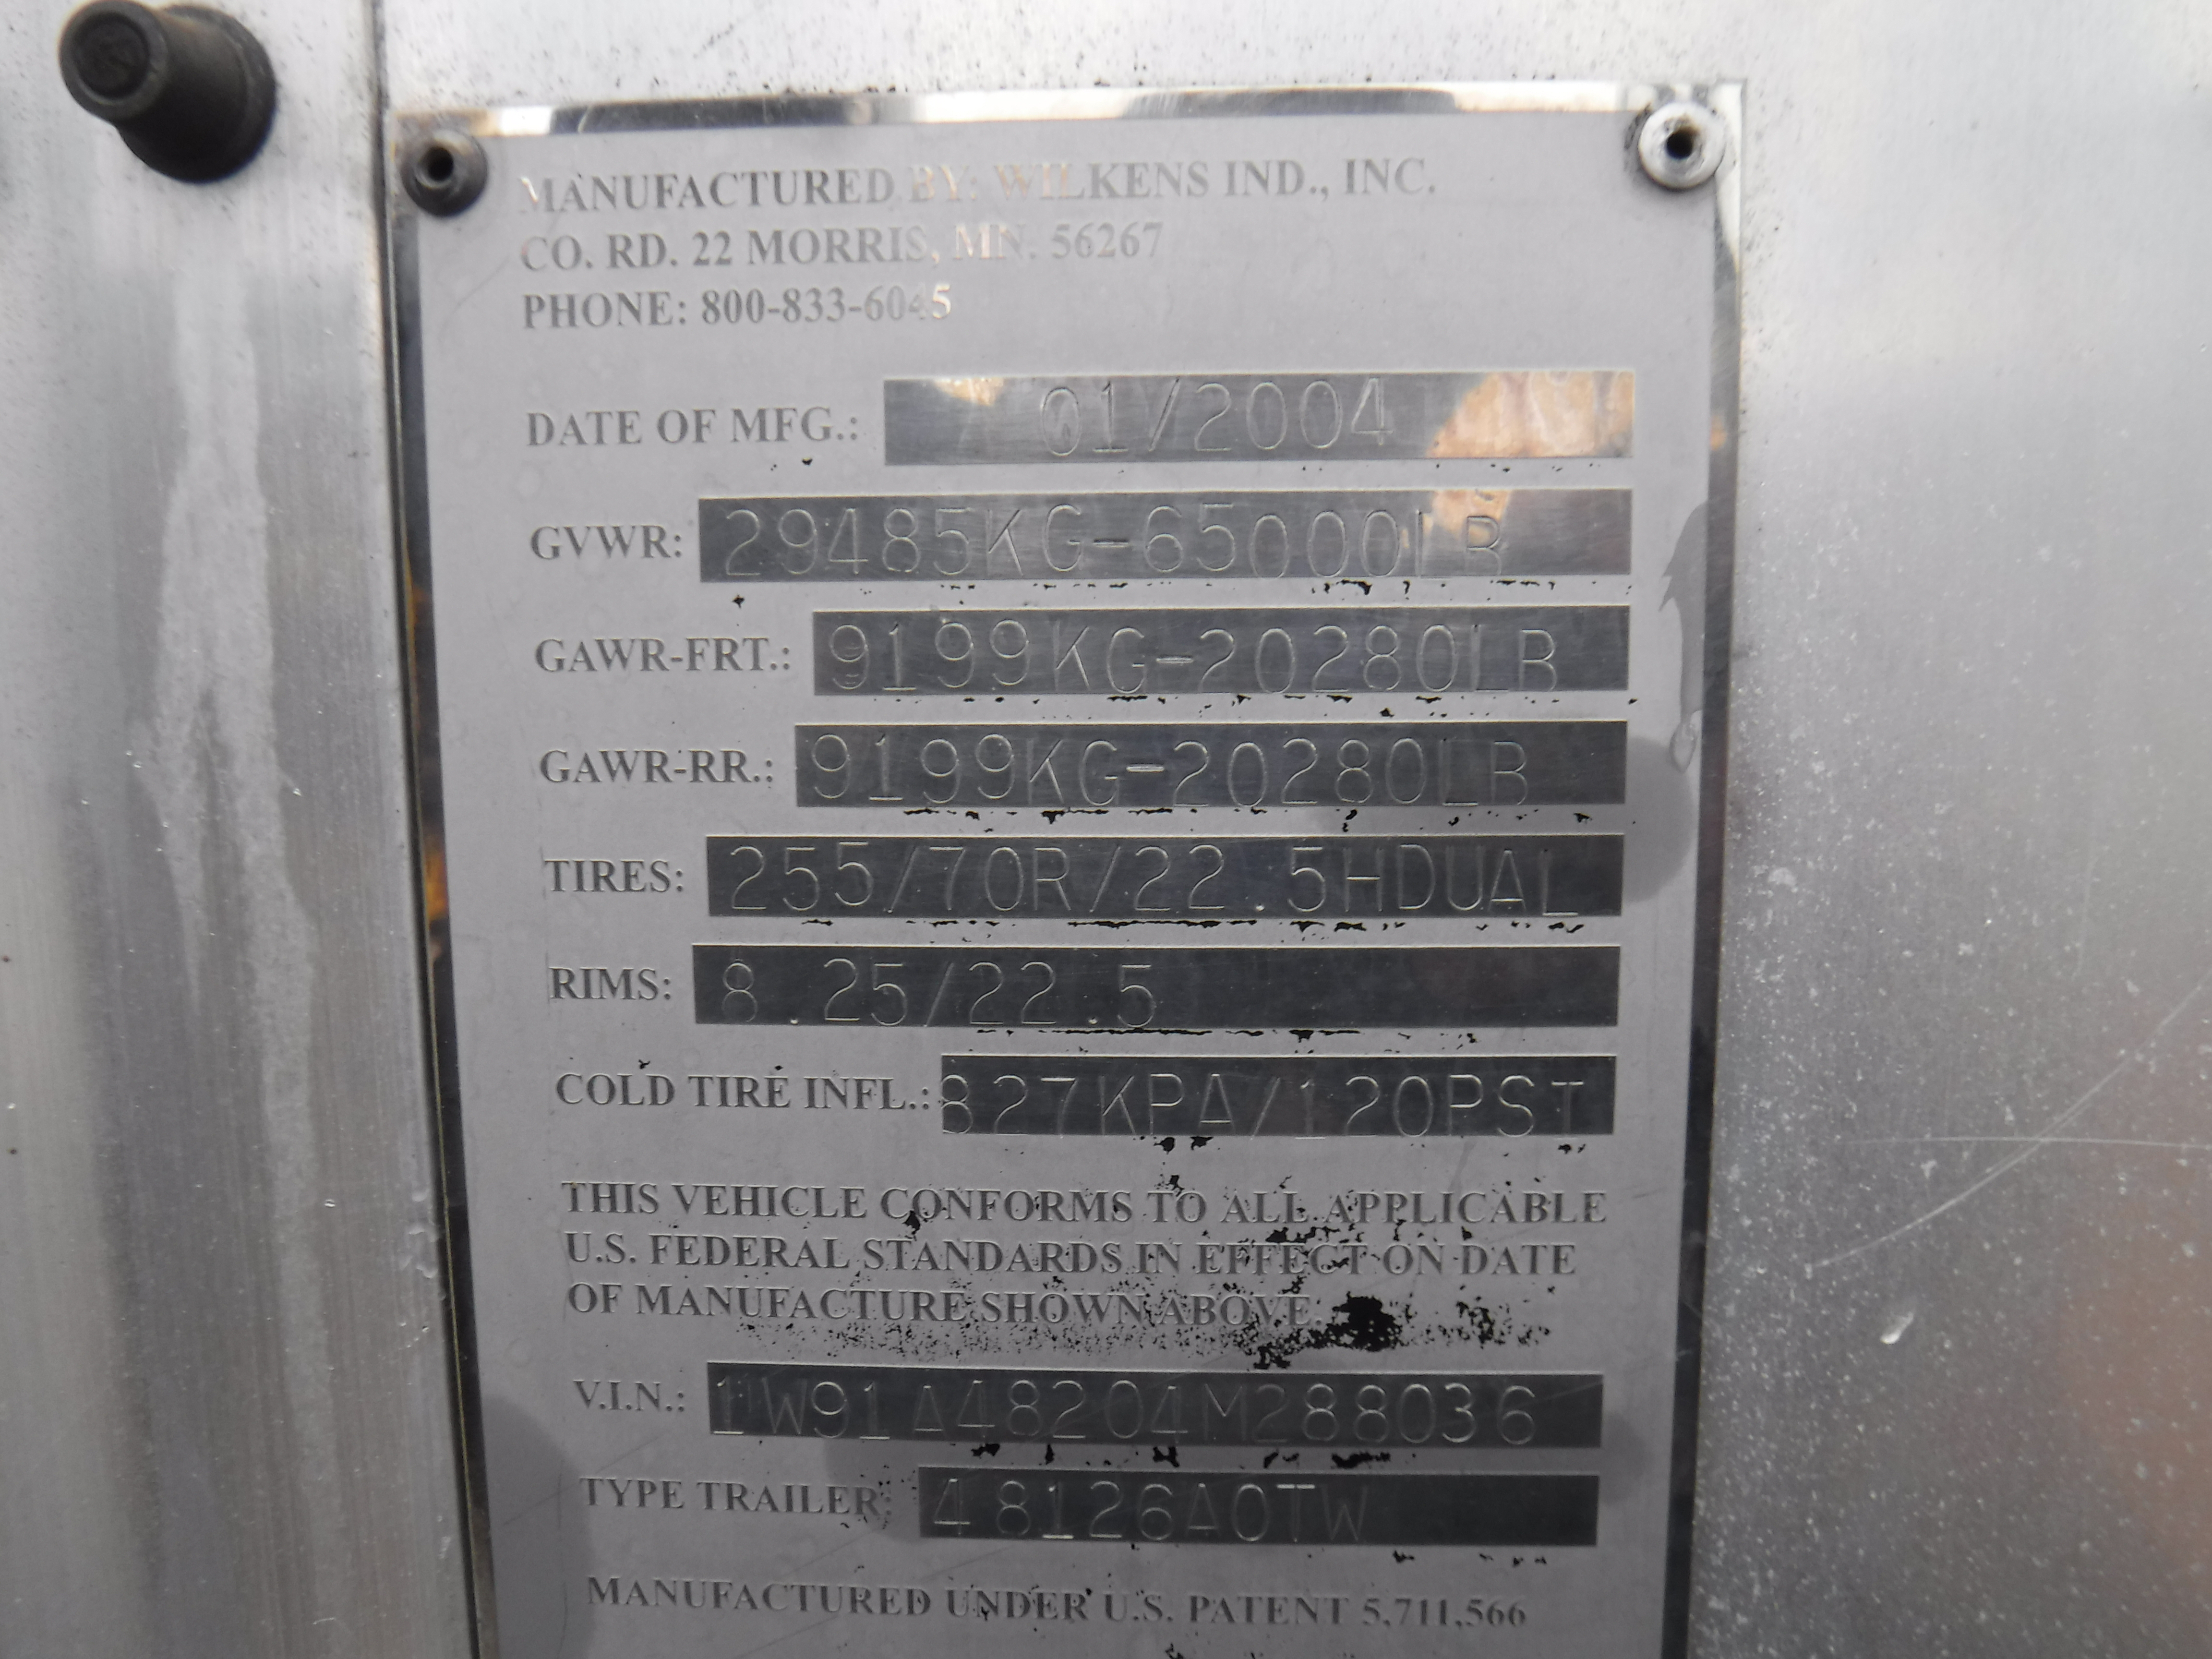 MANUFACTURED BY: WILKENS IND., INC.
CO. RD. 22 MORRIS, MN. 56267
PHONE: 800-833-6045
DATE OF MFG.: 01/2004
GVWR: 29485KG-65000LB
GAWR-FRT.: 9199KG-20280LB
GAWR-RR.: 9199KG-20280LB
TIRES: 255/70R/22.5HDUAL
RIMS: 8.25/22.5
COLD TIRE INFL.: 827KPA/120PSI
THIS VEHICLE CONFORMS TO ALL APPLICABLE
U.S. FEDERAL STANDARDS IN EFFECT ON DATE
OF MANUFACTURE SHOWN ABOVE.
V.I.N.: 1W91A48204M288036
TYPE TRAILER: 48126AOTW
MANUFACTURED UNDER U.S. PATENT 5,711,566